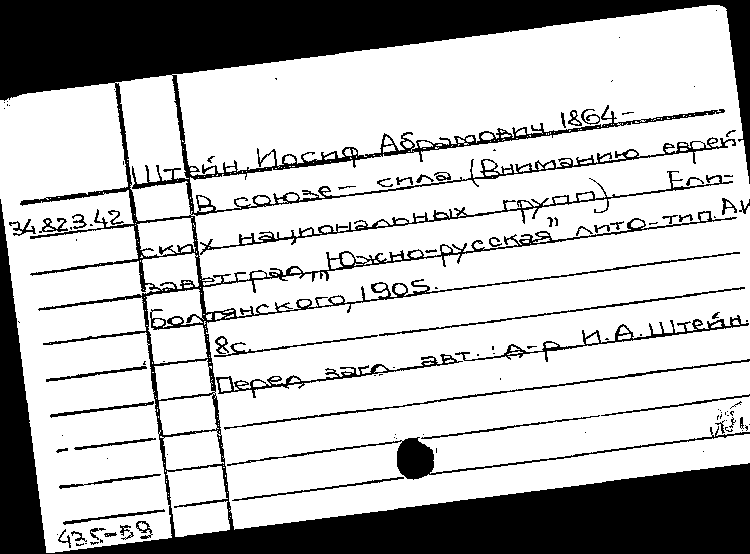 Штейн, Иосиф Абрамович, 1864-
34.823.42
В союзе - сила. (Вниманию еврей-
ских национальных групп). Ели-
заветград, "Южно-русская" лито-тип. А.И.
Болтянского, 1905.
8с.
Перед загл. авт.: д-р И.А. Штейн.
435-59